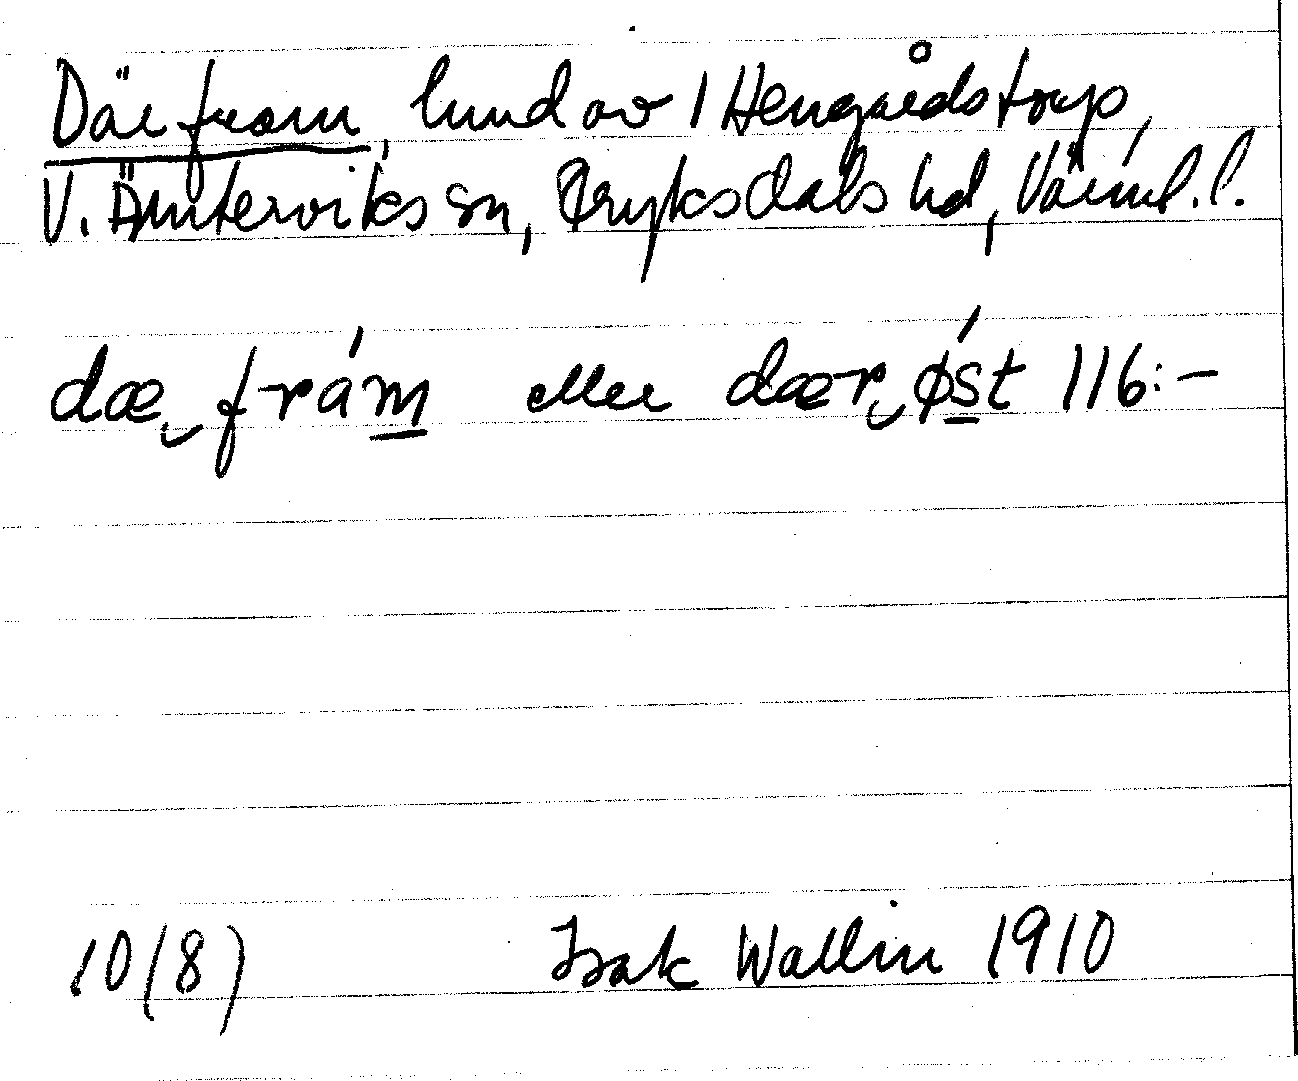 Där fram, lund av 1 Hengårdstorp,
V. Ämterviks sn, Fryksdals hd, Värml. l.
dæ‿frám eller dær‿ǿst 116:-
10(8) Isak Wallin 1910